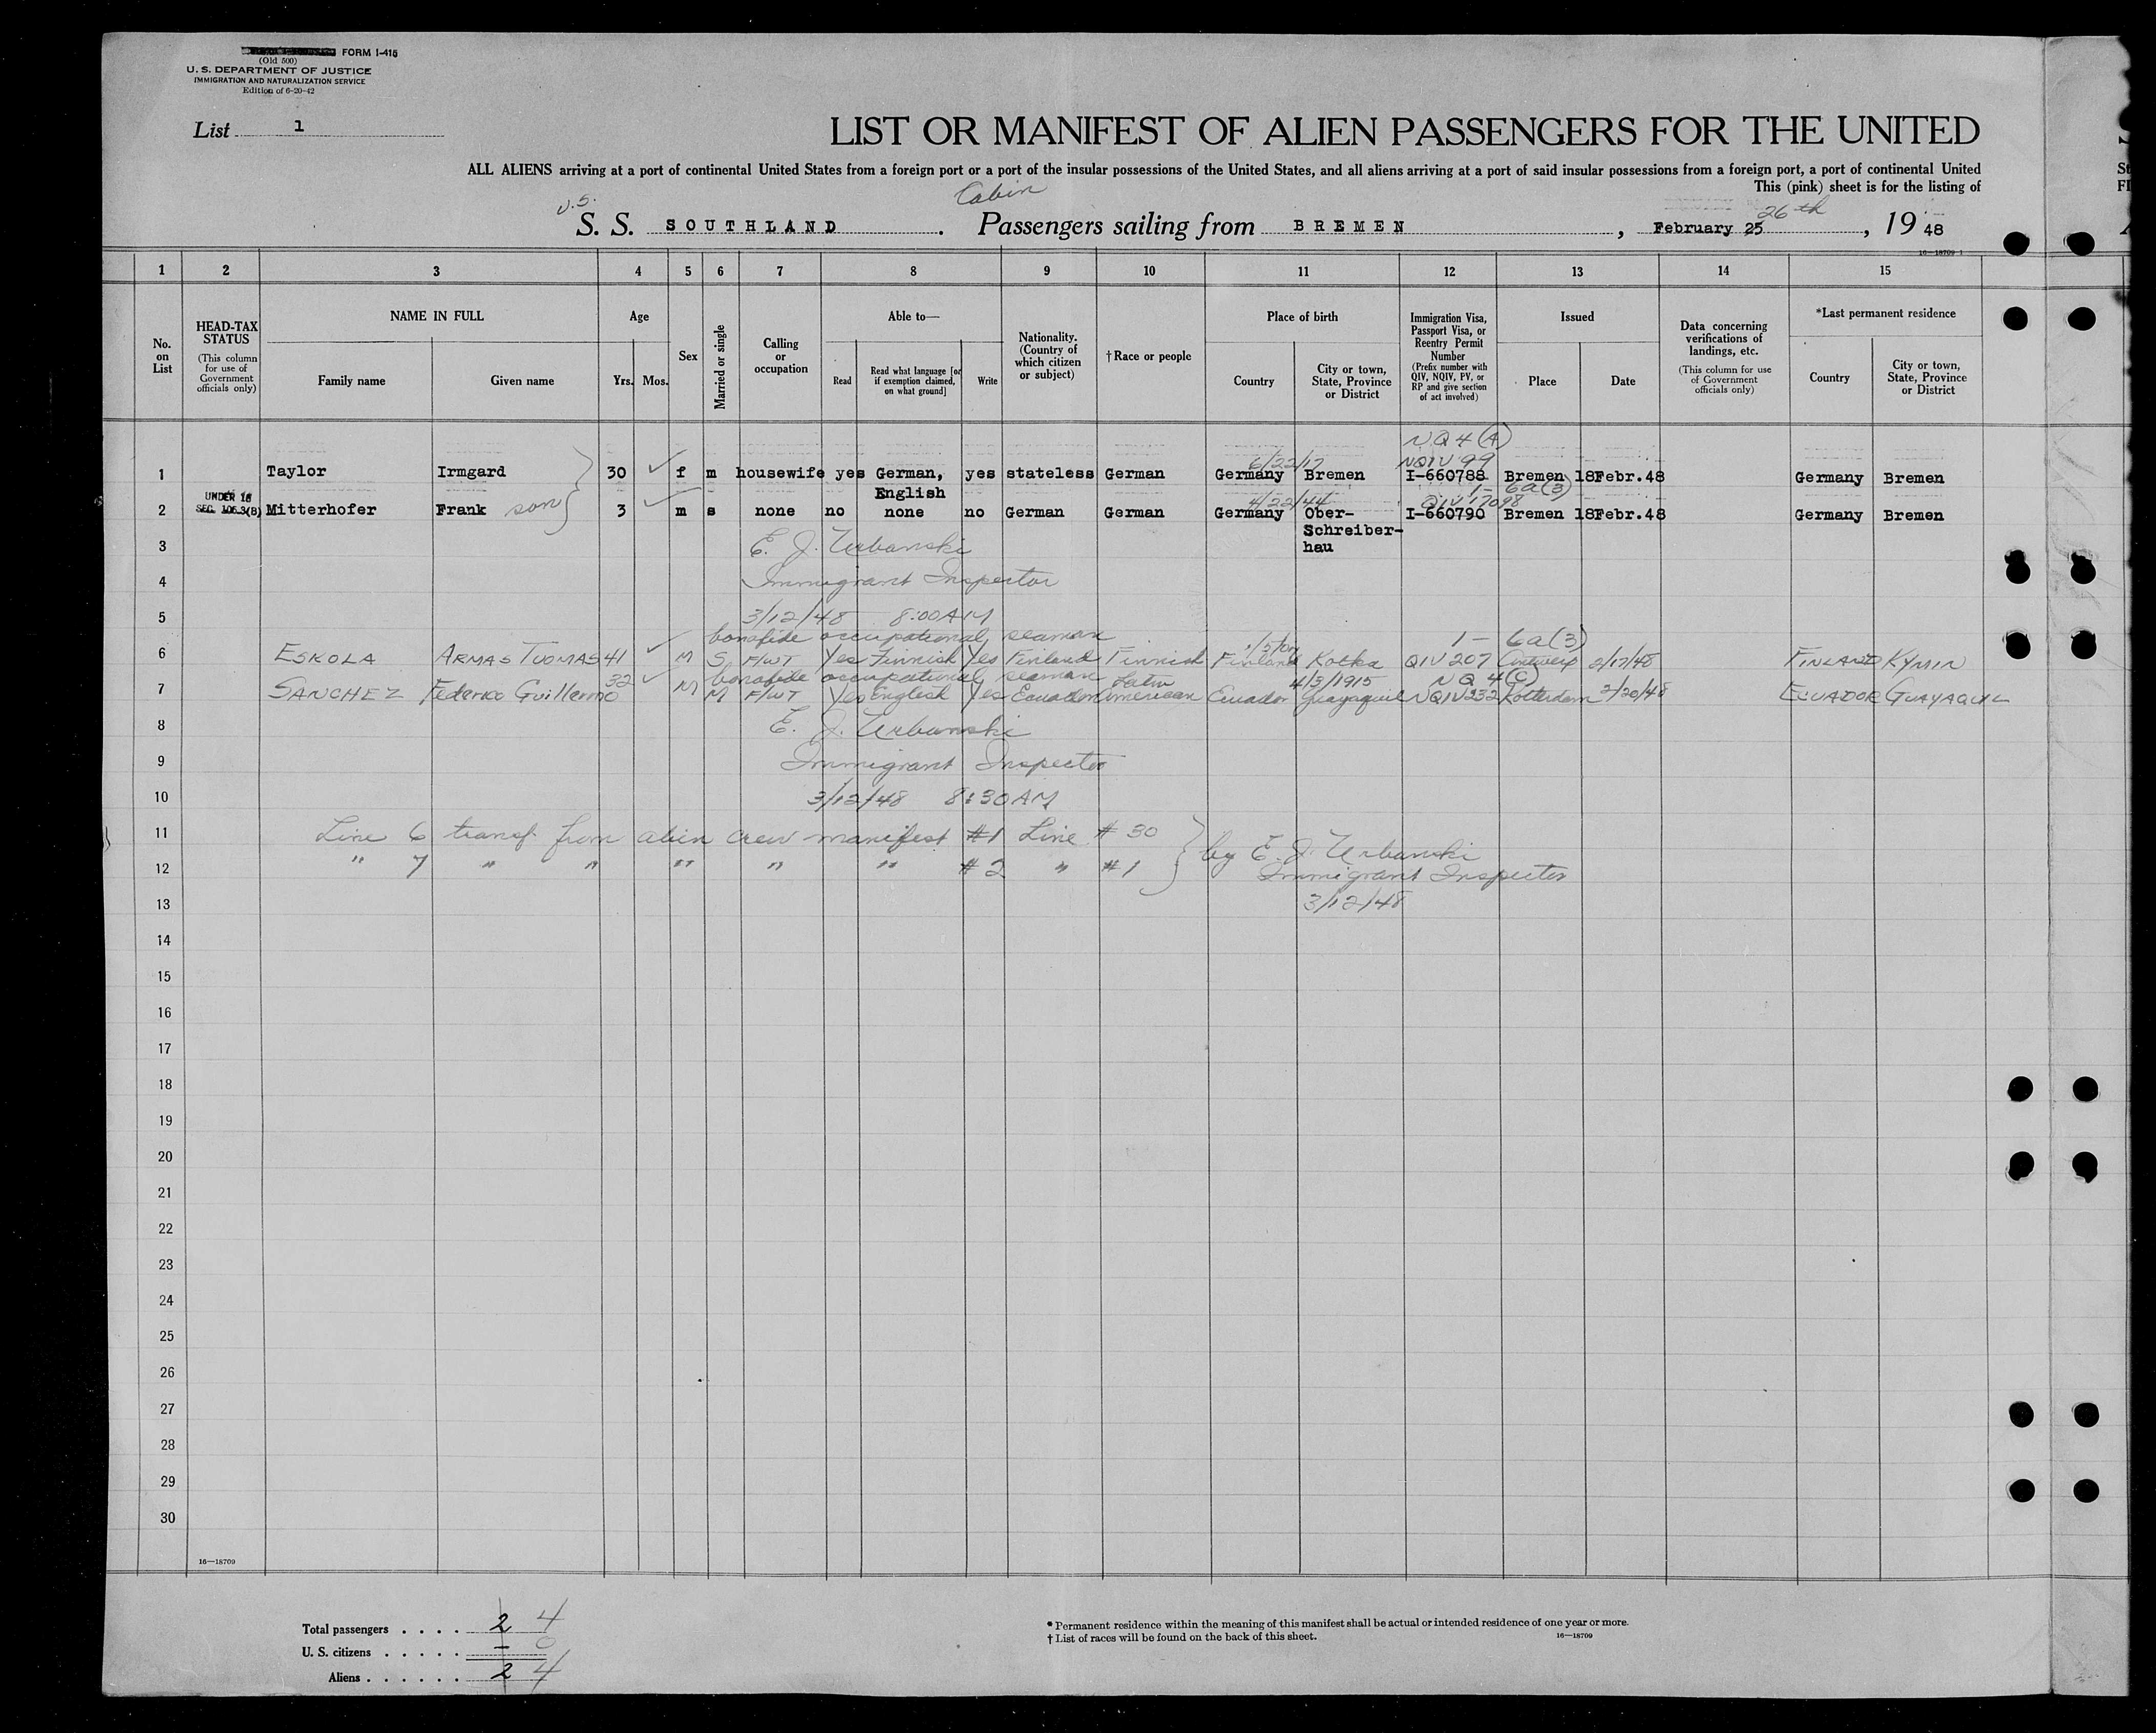 FORM I-415
(Old 500)
U. S. DEPARTMENT OF JUSTICE
IMMIGRATION AND NATURALIZATION SERVICE
Edition of 6-20-42
List 1
LIST OR MANIFEST OF ALIEN PASSENGERS FOR THE UNITED
ALL ALIENS arriving at a port of continental United States from a foreign port or a port of the insular possessions of the United States, and all aliens arriving at a port of said insular possessions from a foreign port, a port of continental United
This (pink) sheet is for the listing of
U.S. Cabin 26th
S. S. SOUTHLAND . Passengers sailing from BREMEN , February 25 , 19 48
16—18709-1
1 2 3 4 5 6 7 8 9 10 11 12 13 14 15
No. on List
HEAD-TAX STATUS
(This column for use of Government officials only)
NAME IN FULL
Family name
Given name
Age
Yrs. Mos.
Sex
Married or single
Calling or occupation
Able to—
Read
Read what language [or if exemption claimed, on what ground]
Write
Nationality. (Country of which citizen or subject)
†Race or people
Place of birth
Country
City or town, State, Province or District
Immigration Visa, Passport Visa, or Reentry Permit Number
(Prefix number with QIV, NQIV, PV, or RP and give section of act involved)
Issued
Place
Date
Data concerning verifications of landings, etc.
(This column for use of Government officials only)
*Last permanent residence
Country
City or town, State, Province or District
NQ 4 (A)
6/22/17 NQIV 99
1 Taylor Irmgard 30 f m housewife yes German, English yes stateless German Germany Bremen I-660788 Bremen 18Febr.48 Germany Bremen
UNDER 16 SEC. 105.3(B)
4/22/44 QIV 17098 1- 6a(3)
2 Mitterhofer Frank son 3 m s none no none no German German Germany Ober-Schreiber-hau I-660790 Bremen 18Febr.48 Germany Bremen
3 E. J. Urbanski
4 Immigrant Inspector
5 3/12/48 8:00AM
bonafide occupational seaman 1- 6a(3)
6 ESKOLA ARMAS TUOMAS 41 M S F/WT Yes Finnish Yes Finland Finnish Finland Kotka QIV 207 Antwerp 2/17/48 FINLAND KYMIN
bonafide occupational seaman 4/3/1915 NQ 4(C)
7 SANCHEZ Federico Guillermo 32 M M F/WT Yes English Yes Ecuador Latin American Ecuador Guayaquil NQIV232 Rotterdam 2/20/48 ECUADOR GUAYAQUIL
8 E. J. Urbanski
9 Immigrant Inspector
10 3/12/48 8:30AM
11 Line 6 transf. from alien crew manifest #1 Line #30
12 " 7 " " " " " #2 " #1
by E. J. Urbanski
Immigrant Inspector
13 3/12/48
14
15
16
17
18
19
20
21
22
23
24
25
26
27
28
29
30
16—18709
Total passengers . . . . 2 4
U. S. citizens . . . . . — 0
Aliens . . . . . . 2 4
* Permanent residence within the meaning of this manifest shall be actual or intended residence of one year or more.
† List of races will be found on the back of this sheet.
16—18709